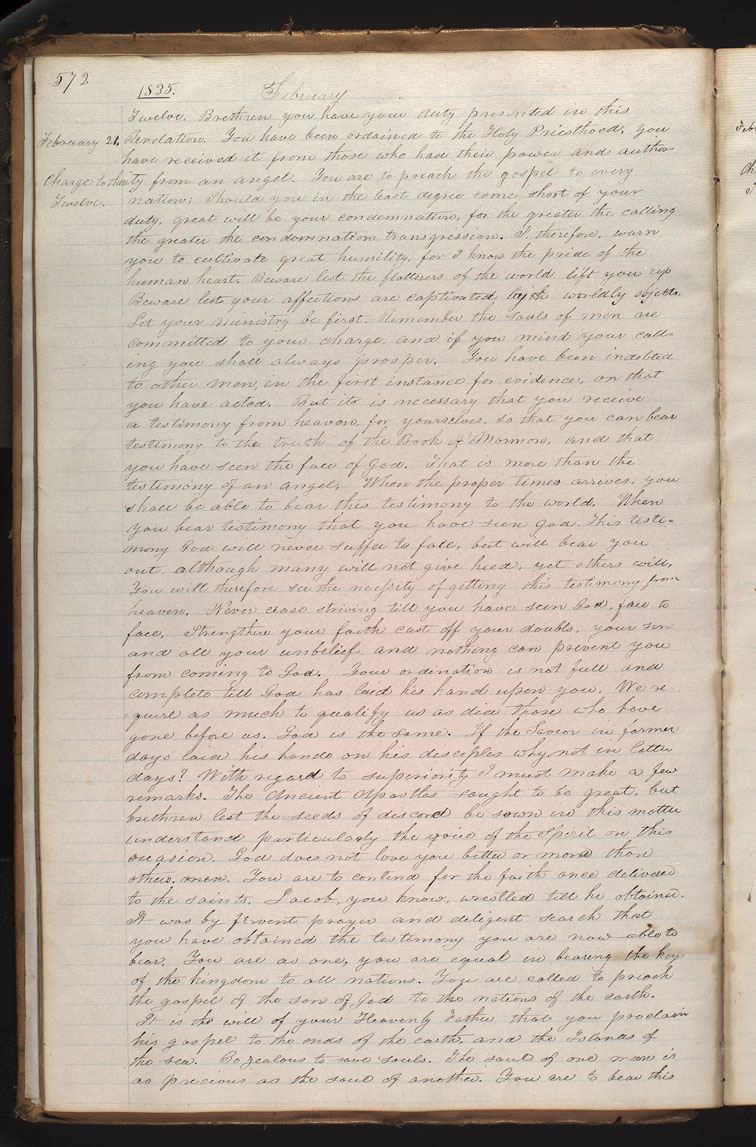 572
1835.
February
Twelve. Brethren you have your duty presented in this
February 21. Revelation. You have been ordained to the Holy Priesthood, you
have received it from those who had their power and author
Charge to the Twelve. ity from an angel. You are to preach the gospel to every
nation; Should you in the least degree come short of your
duty, great will be your condemnation, for the greater the calling
the greater the condemnation transgression. I, therefore, warn
you to cultivate great humility, for I know the pride of the
human heart. Beware lest the flatterers of the world lift you up
Beware lest your affections are captivated by the worldly objects.
Let your ministry be first. Remember the Souls of men are
committed to your charge, and if you mind your call-
ing you shall always prosper. You have been indebted
to other men, in the first instance for evidence, on that
you have acted. But it is necessary that you receive
a testimony from heaven for yourselves. so that you can bear
testimony to the truth of the Book of Mormon, and that
you have seen the face of God. That is more than the
testimony of an angel. When the proper times arrives, you
shall be able to bear this testimony to the world. When
you bear testimony that you have seen God. This testi-
mony God will never suffer to fall, but will bear you
out. although many will not give heed, yet others will.
You will therefore see the necessity of getting this testimony from
heaven. Never cease striving till you have seen God, face to
face. Strengthen your faith cast off your doubts, your sins
and all your unbelief and nothing can prevent you
from coming to God. Your ordination is not full and
complete till God has laid his hand upon you. We re-
quire as much to qualify us as did those who have
gone before us. God is the same. If the Savior in former
days laid his hands on his disciples why not in latter
days? With regard to superiority I must make a few
remarks. The Ancient Apostles sought to be great, but
brethren lest the seeds of discord be sown in this matter
understand particularly the voice of the Spirit on this
occasion. God does not love you better or more than
others. men. You are to contend for the faith once delivered
to the saints. Jacob, you know, wrestled till he obtained.
It was by fervent prayer and diligent search that
you have obtained the testimony you are now able to
bear. You are as one, you are equal in bearing the key
of the kingdom to all nations. You are called to preach
the gospel of the son of God to the nations of the earth.
It is the will of your Heavenly Father that you proclaim
his gospel to the ends of the earth, and the Islands of
the sea. Be zealous to save souls. The soul of one man is
as precious as the soul of another. You are to bear this